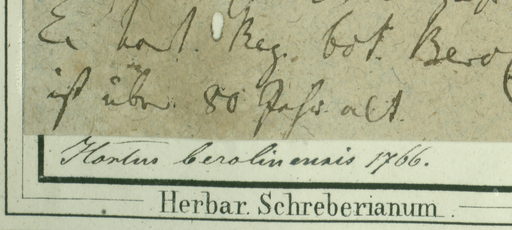 Ex hort. Reg. bot. Bero
ist über 80 Jahr alt.
Hortus berolinensis 1766.
Herbar. Schreberianum